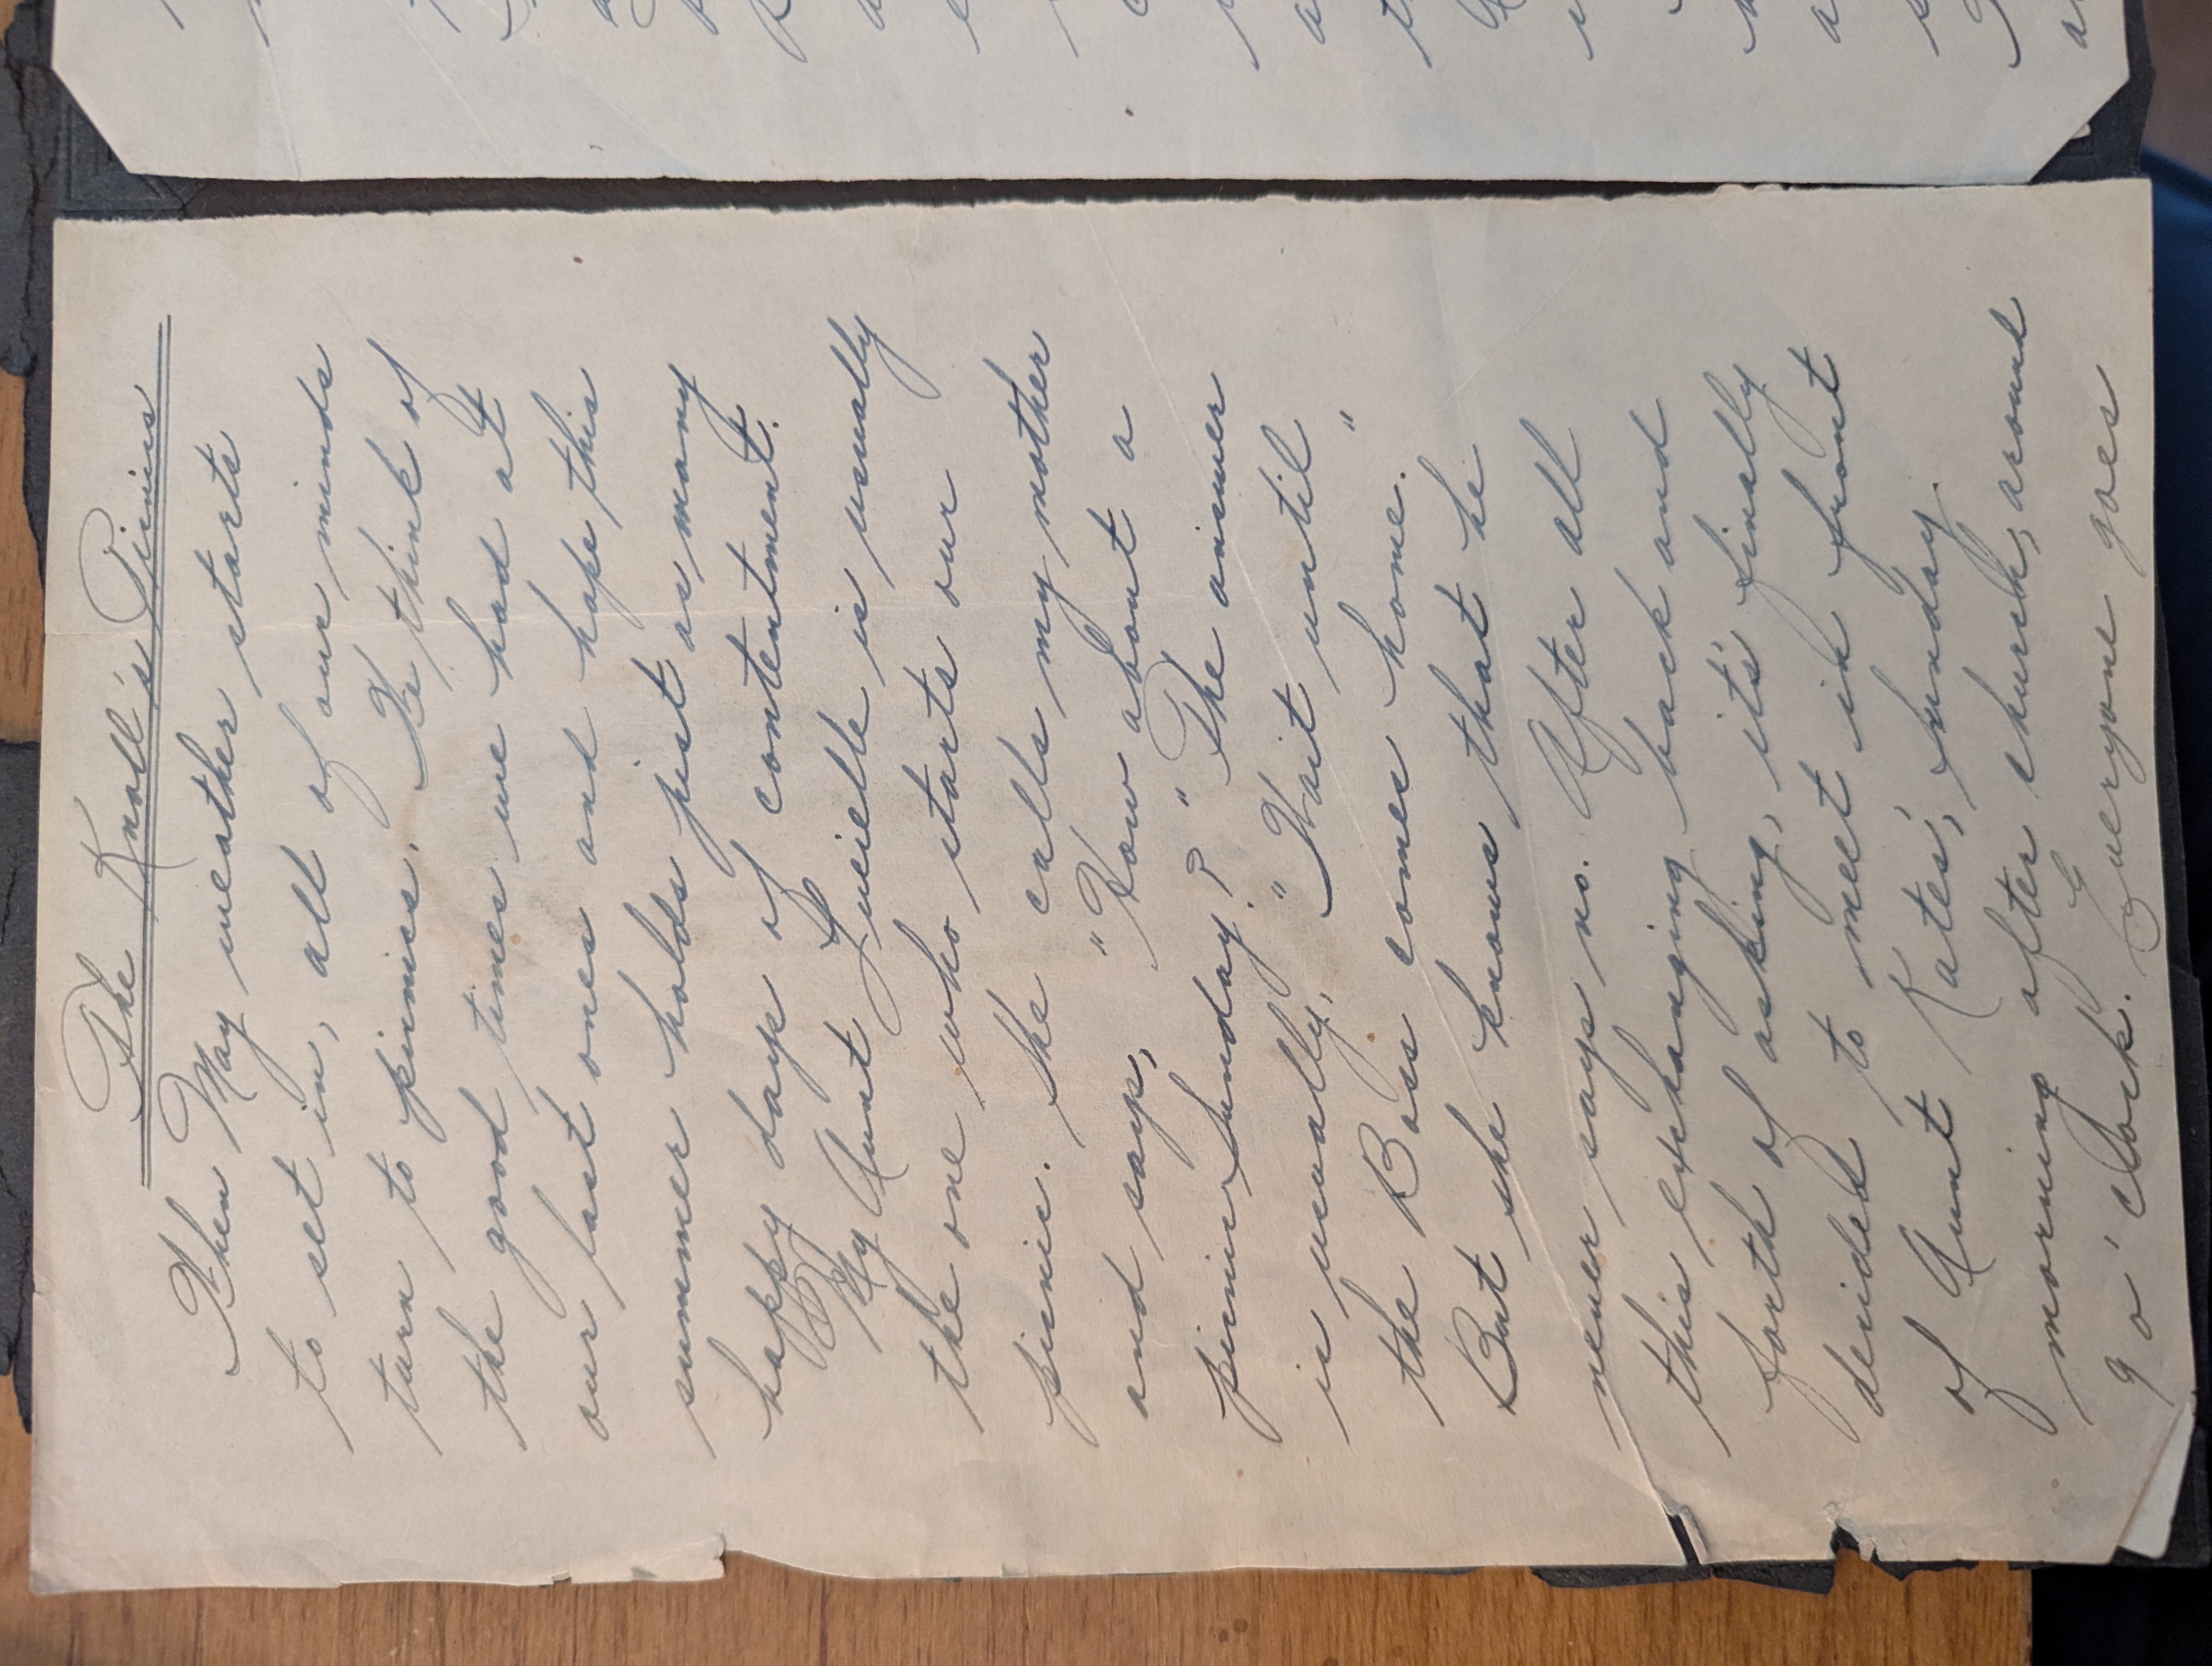 The Knoll's Picnics
When May weather starts
to set in, all of our minds
turn to picnics. We think of
the good times we had at
our last ones and hope this
summer holds just as many
happy days of contentment.
My Aunt Lucille is usually
the one who starts our
picnic. She calls my mother
and says, "How about a
picnic Sunday?" The answer
is usually, "Wait until
the Boss comes home."
But she knows that he
never says no. After all
this exchanging back and
forth of asking, it's finally
decided to meet in front
of Aunt Kate's, Sunday
morning after church, around
9 o'clock. Everyone goes